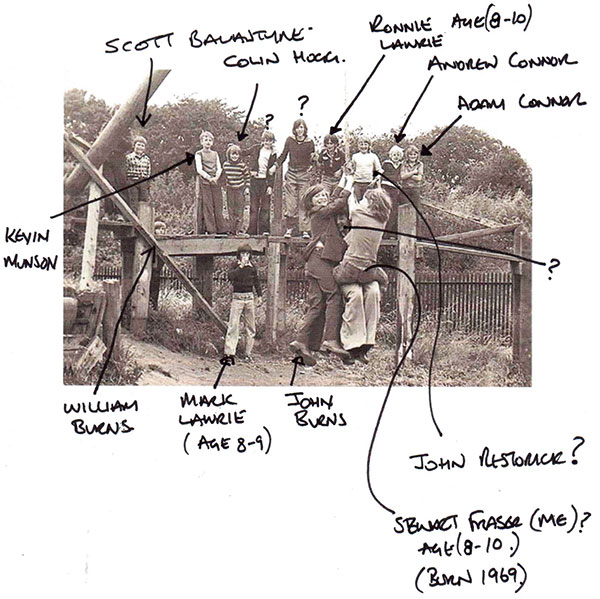 SCOTT BALANTYNE-
COLIN HOGG.
RONNIE AGE(8-10)
LAWRIE
ANDREW CONNOR
ADAM CONNOR
?
?
KEVIN
MUNSON
?
WILLIAM
BURNS.
MARK
LAWRIE
(AGE 8-9)
JOHN
BURNS
JOHN RESTORICK?
STEWART FRASER (ME)?
AGE(8-10.)
(BURN 1969)